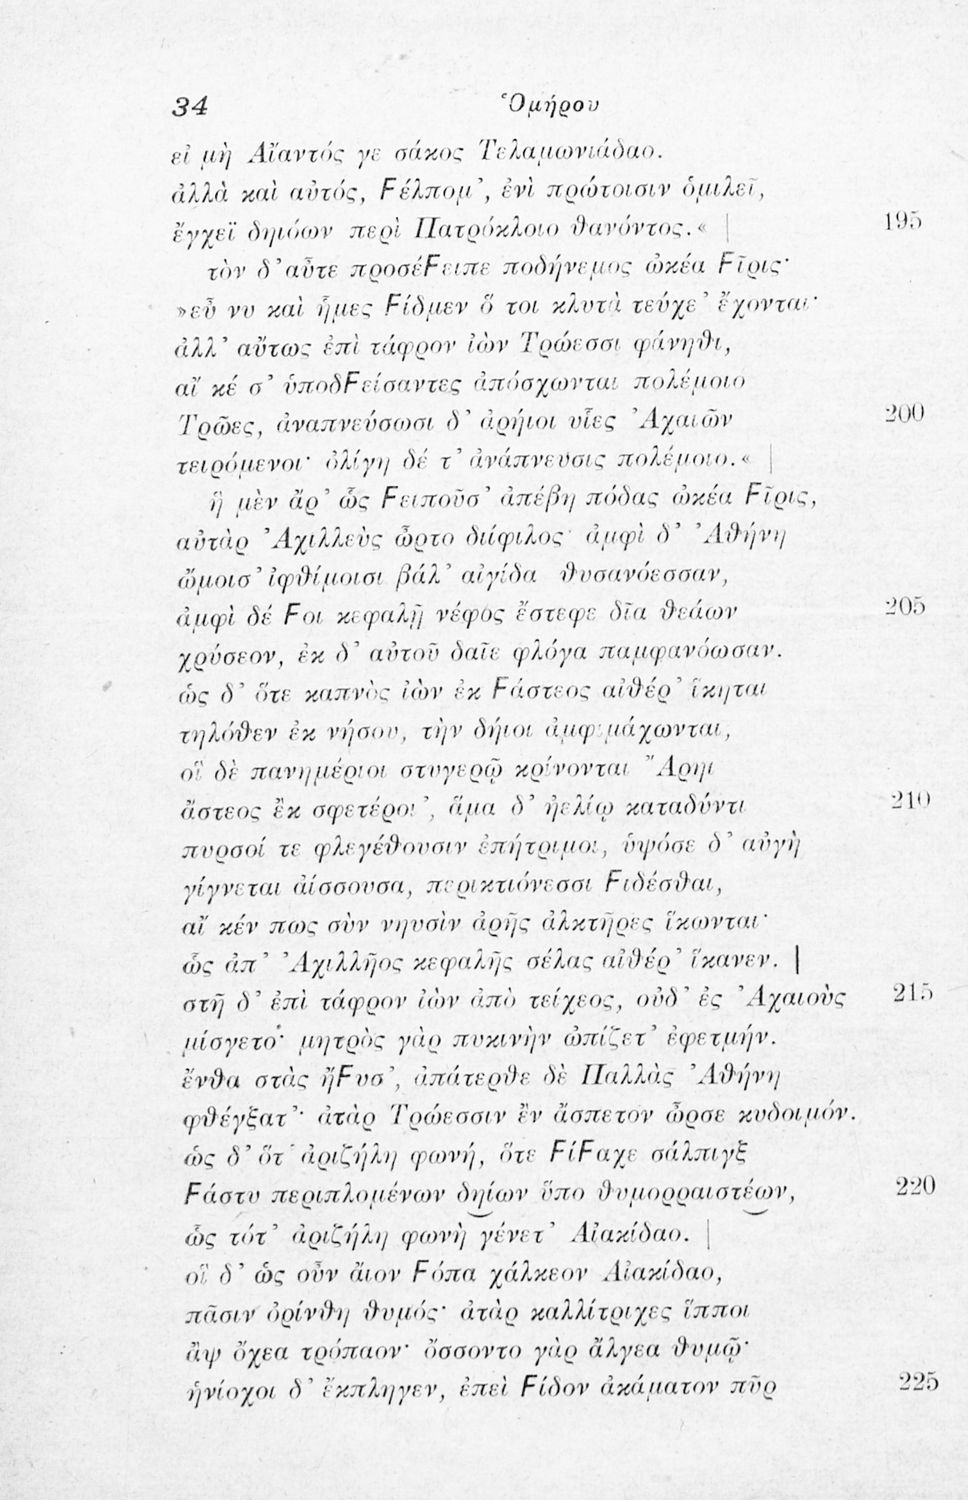 34 Ὁμήρου
εἰ μὴ Αἴαντός γε σάκος Τελαμωνιάδαο.
ἀλλὰ καὶ αὐτός, Ϝέλπομ’, ἐνὶ πρώτοισιν ὁμιλεῖ,
ἔγχεϊ δηιόων περὶ Πατρόκλοιο θανόντος.« | 195
τὸν δ’ αὖτε προσέϜειπε ποδήνεμος ὠκέα Ϝῖρις·
»εὖ νυ καὶ ἦμες Ϝίδμεν ὅ τοι κλυτὰ τεύχε’ ἔχονται·
ἀλλ’ αὔτως ἐπὶ τάφρον ἰὼν Τρώεσσι φάνηθι,
αἴ κέ σ’ ὑποδϜείσαντες ἀπόσχωνται πολέμοιο
Τρῶες, ἀναπνεύσωσι δ’ ἀρήιοι υἷες Ἀχαιῶν 200
τειρόμενοι· ὀλίγη δέ τ’ ἀνάπνευσις πολέμοιο.« |
ἣ μὲν ἄρ’ ὣς Ϝειποῦσ’ ἀπέβη πόδας ὠκέα Ϝῖρις,
αὐτὰρ Ἀχιλλεὺς ὦρτο διίφιλος· ἀμφὶ δ’ Ἀθήνη
ὤμοισ’ ἰφθίμοισι βάλ’ αἰγίδα θυσανόεσσαν,
ἀμφὶ δέ Ϝοι κεφαλῇ νέφος ἔστεφε δῖα θεάων 205
χρύσεον, ἐκ δ’ αὐτοῦ δαῖε φλόγα παμφανόωσαν.
ὡς δ’ ὅτε καπνὸς ἰὼν ἐκ Ϝάστεος αἰθέρ’ ἵκηται
τηλόθεν ἐκ νήσου, τὴν δήιοι ἀμφιμάχωνται,
οἳ δὲ πανημέριοι στυγερῷ κρίνονται Ἄρηι
ἄστεος ἒκ σφετέροι’, ἅμα δ’ ἠελίῳ καταδύντι 210
πυρσοί τε φλεγέθουσιν ἐπήτριμοι, ὑψόσε δ’ αὐγὴ
γίγνεται ἀίσσουσα, περικτιόνεσσι Ϝιδέσθαι,
αἴ κέν πως σὺν νηυσὶν ἀρῆς ἀλκτῆρες ἵκωνται·
ὣς ἀπ’ Ἀχιλλῆος κεφαλῆς σέλας αἰθέρ’ ἵκανεν. |
στῆ δ’ ἐπὶ τάφρον ἰὼν ἀπὸ τείχεος, οὐδ’ ἐς Ἀχαιοὺς 215
μίσγετο· μητρὸς γὰρ πυκινὴν ὠπίζετ’ ἐφετμήν.
ἔνθα στὰς ἤϜυσ’, ἀπάτερθε δὲ Παλλὰς Ἀθήνη
φθέγξατ’· ἀτὰρ Τρώεσσιν ἒν ἄσπετον ὦρσε κυδοιμόν.
ὡς δ’ ὅτ’ ἀριζήλη φωνή, ὅτε ϜίϜαχε σάλπιγξ
Ϝάστυ περιπλομένων δηίων ὕπο θυμορραιστέων, 220
ὣς τότ’ ἀριζήλη φωνὴ γένετ’ Αἰακίδαο. |
οἳ δ’ ὡς οὖν ἄιον Ϝόπα χάλκεον Αἰακίδαο,
πᾶσιν ὀρίνθη θυμός· ἀτὰρ καλλίτριχες ἵπποι
ἂψ ὄχεα τρόπαον· ὄσσοντο γὰρ ἄλγεα θυμῷ·
ἡνίοχοι δ’ ἔκπληγεν, ἐπεὶ Ϝίδον ἀκάματον πῦρ 225